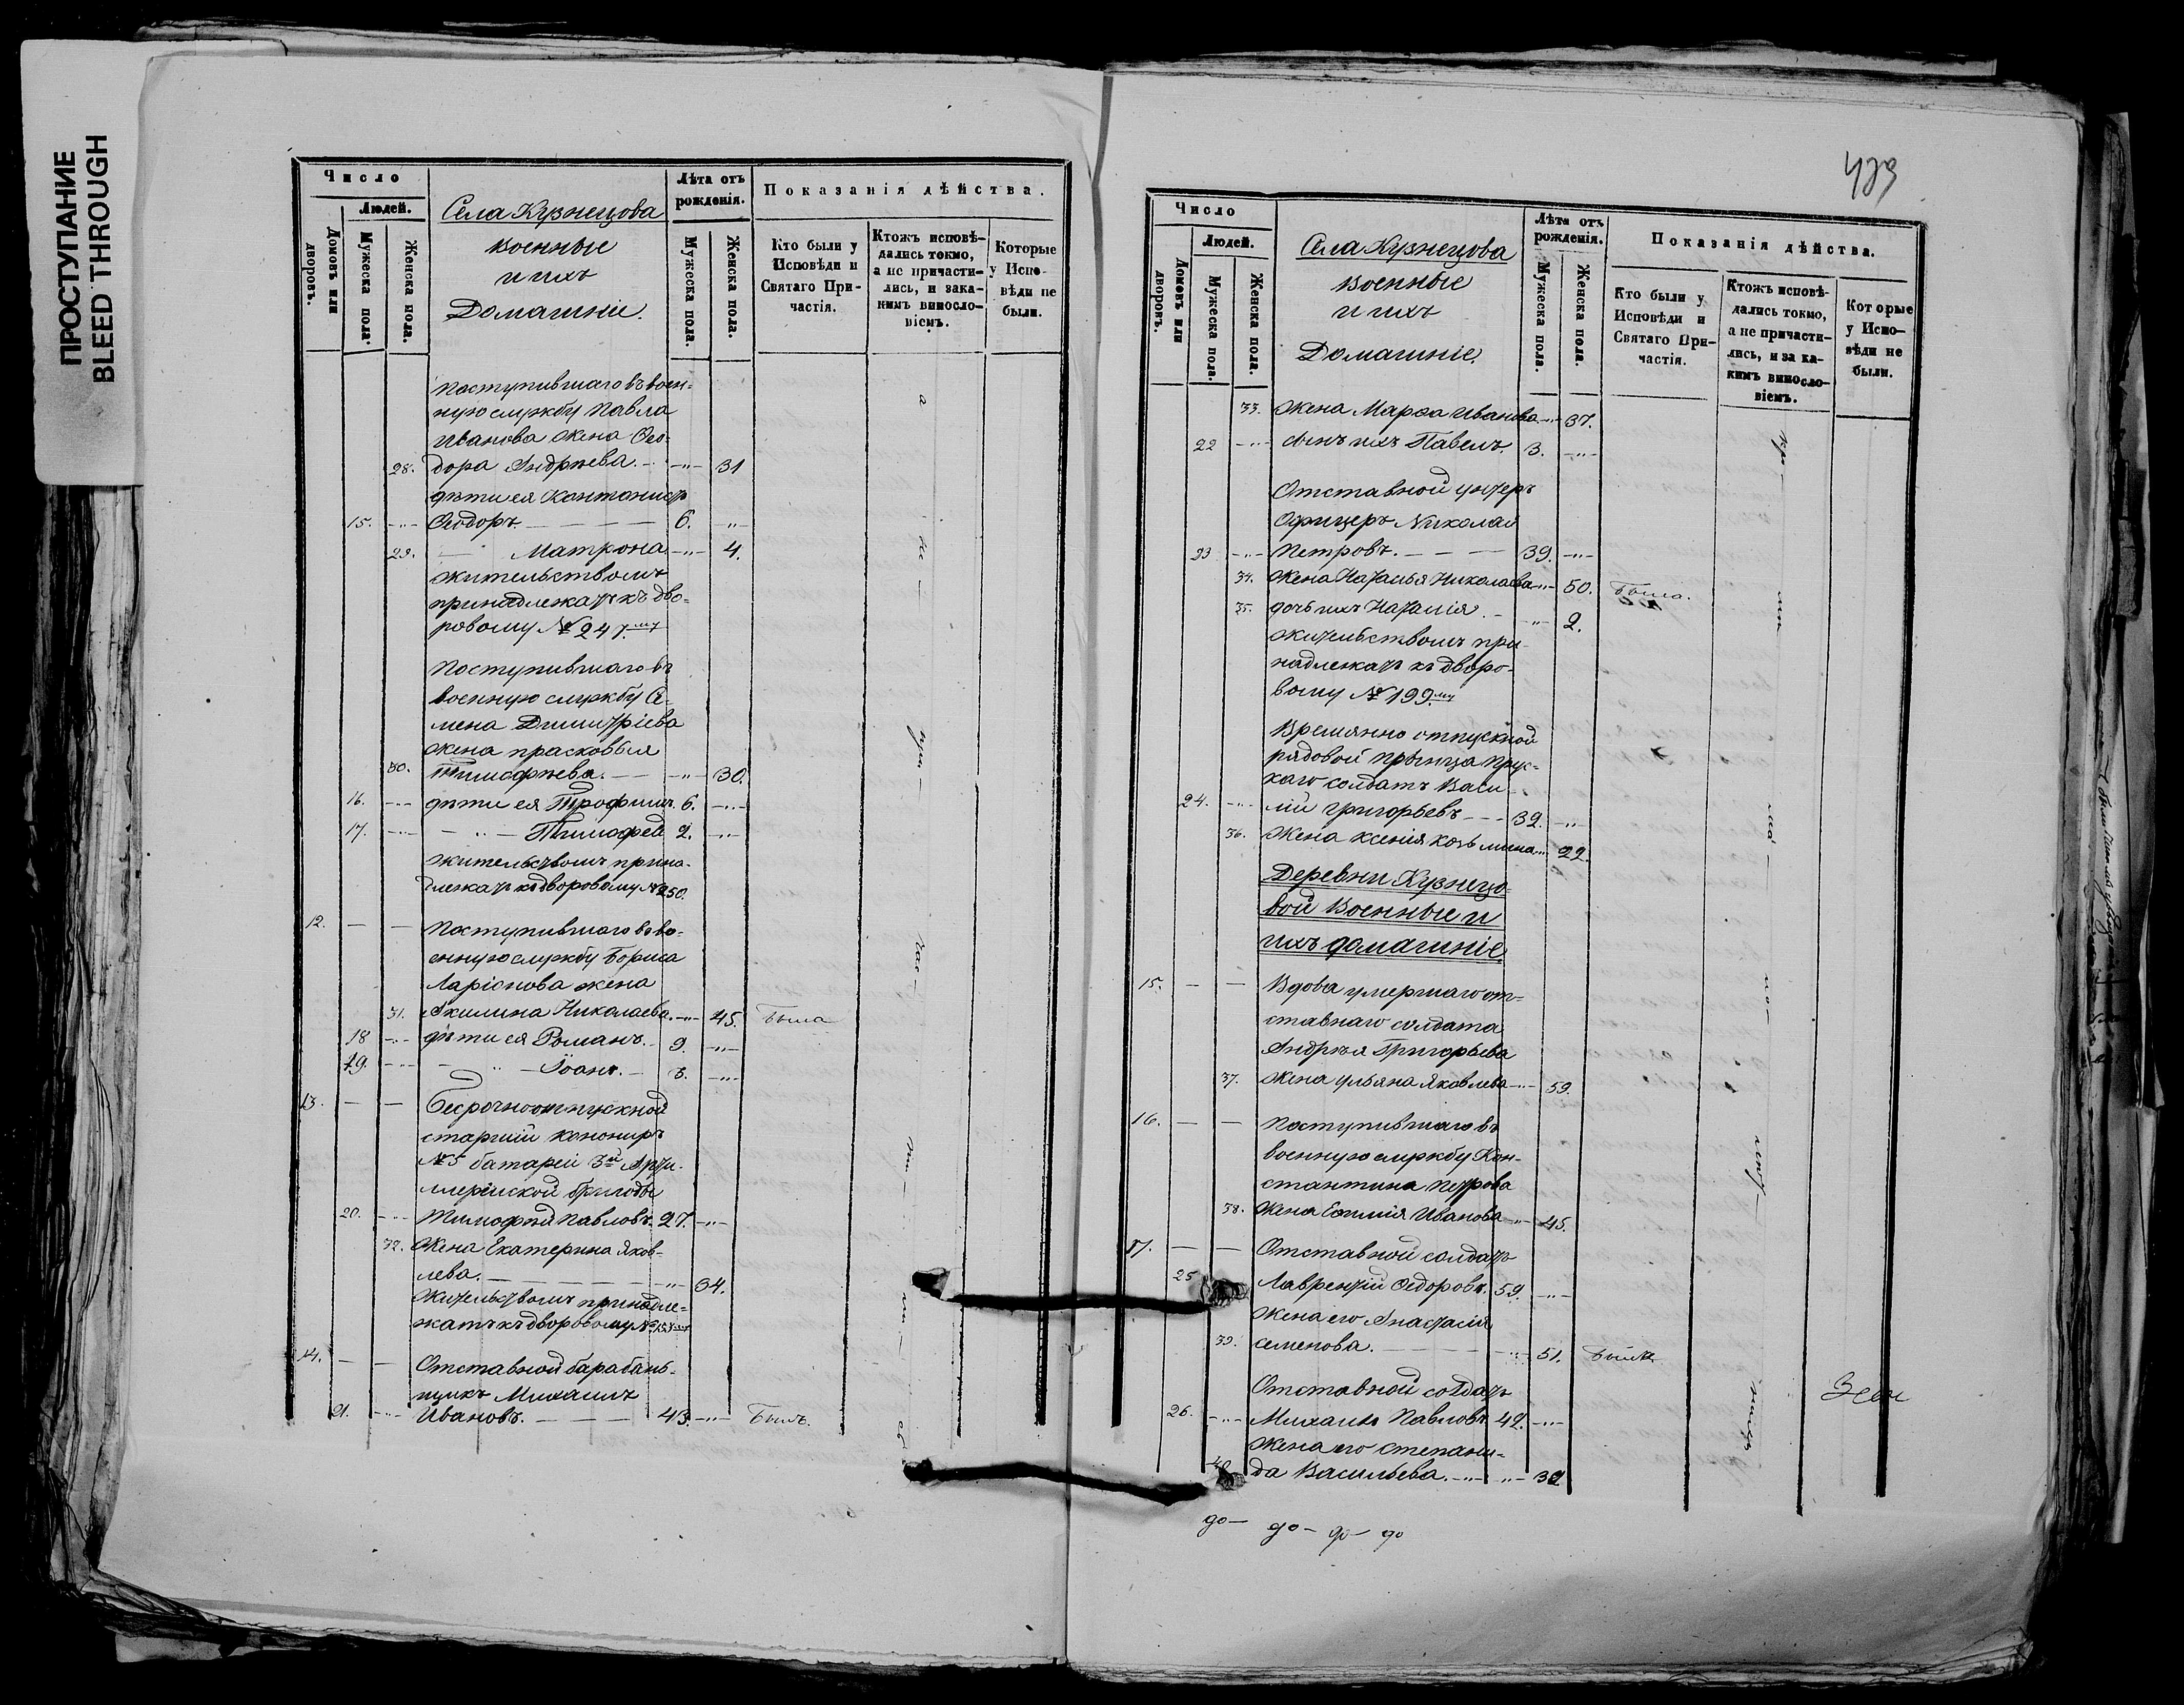 ПРОСТУПАНИЕ
BLEED THROUGH
Число
Людей.
Домовъ или дворовъ.
Мужеска пола.
Женска пола.
Села Кузнецова
военные
и ихъ
Домашніе.
Лѣта отъ рожденія.
Мужеска пола.
Женска пола.
Показанія дѣйства.
Кто были у Исповѣди и Святаго Причастія.
Ктожъ исповѣдались токмо, а не причастились, и закакимъ винословіемъ.
Которые у Исповѣди не были.
поступившаго въ воен-
ную службу Павла
Иванова жена Ѳео-
28. дора Андрѣева. 31
дѣти ея кантонистъ
15. Ѳеодоръ 6.
29. Матрона 4.
жительствомъ
принадлежатъ къ дво-
ровому № 247му
Поступившаго въ
военную службу Се-
мена Димитріева
жена прасковья
30. Тимофѣева. 30.
16. дѣти ея Трофимъ. 6.
17. Тимофей 2.
жительствомъ прина-
длежатъ къ дворовому № 250.
12. Поступившаго въ во-
енную службу Бориса
Ларіонова жена
31. Акилина Николаева. 45. Была
18 дѣти ея Романъ. 9.
19. Іоанъ. 3.
13. Безсрочноотпускной
старшій канониръ
№ 5 батареи 3й Арти-
лерійской бригады
20. Тимофѣй Павловъ. 27.
32. Жена Екатерина Яков-
лева. 34.
Жительствомъ принадле-
жатъ къ дворовому №
14. Отставной барабань-
щикъ Михаилъ
21. Ивановъ. 43. Былъ.
Число
Людей.
Домовъ или дворовъ.
Мужеска пола.
Женска пола.
Села Кузнецова
военные
и ихъ
Домашніе.
Лѣта отъ рожденія.
Мужеска пола.
Женска пола.
Показанія дѣйства.
Кто были у Исповѣди и Святаго Причастія.
Ктожъ исповѣдались токмо, а не причастились, и за какимъ винословіемъ.
Которые у Исповѣди не были.
33. Жена Марѳа Иванова 37.
22 сынъ ихъ Павелъ. 3.
Отставной унтеръ
Офицеръ Николай
23 Петровъ. 39.
34. Жена Наталья Николаева 50. Была.
35. дочь ихъ Наталія 2.
жительствомъ при-
надлежатъ къ дворо-
вому № 199.му
Времянно отпускной
рядовой принца Прус-
каго солдатъ Васи-
24. лій Григорьевъ 32.
36. Жена Ксенія Козьмина 22.
Деревни Кузнецо-
вой Военные и
ихъ домашніе
15. Вдова умершаго от-
ставнаго солдата
Андрѣя Григорьева
37. Жена ульяна Яковлева 59.
16. Поступившаго въ
военную службу Кон-
стантина Петрова
38. Жена Евфимія Иванова 45.
17. Отставной солдатъ
25 Лаврентій Ѳедоровъ. 59.
Жена его Анастасія
39. семенова. 51. Была
Отставной солдатъ
26. Михаилъ Павловъ. 42.
Жена его степани-
40 да Васильева. 32
до- до- до- до